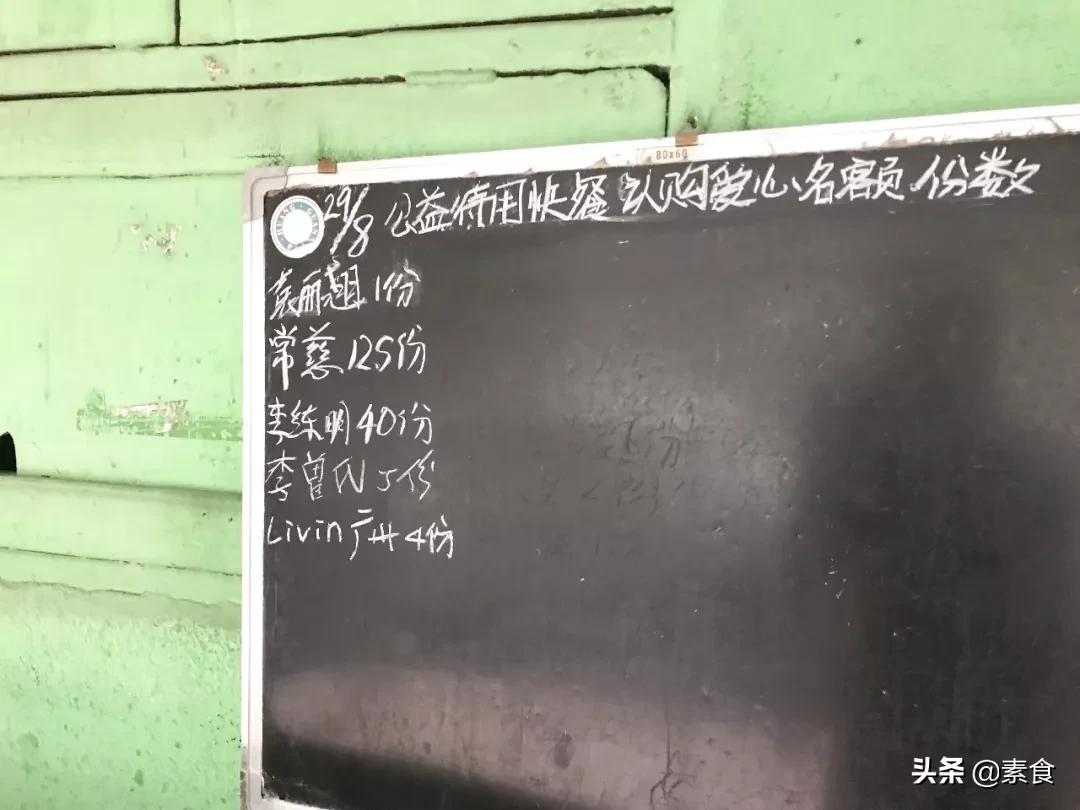 80x60
HUANG GUAN
29/8 公益待用快餐 认购爱心名额 份数
袁丽超 1份
常慈 125份
李练明 40份
李曾氏 5份
Livin 广州 4份
头条 @素食